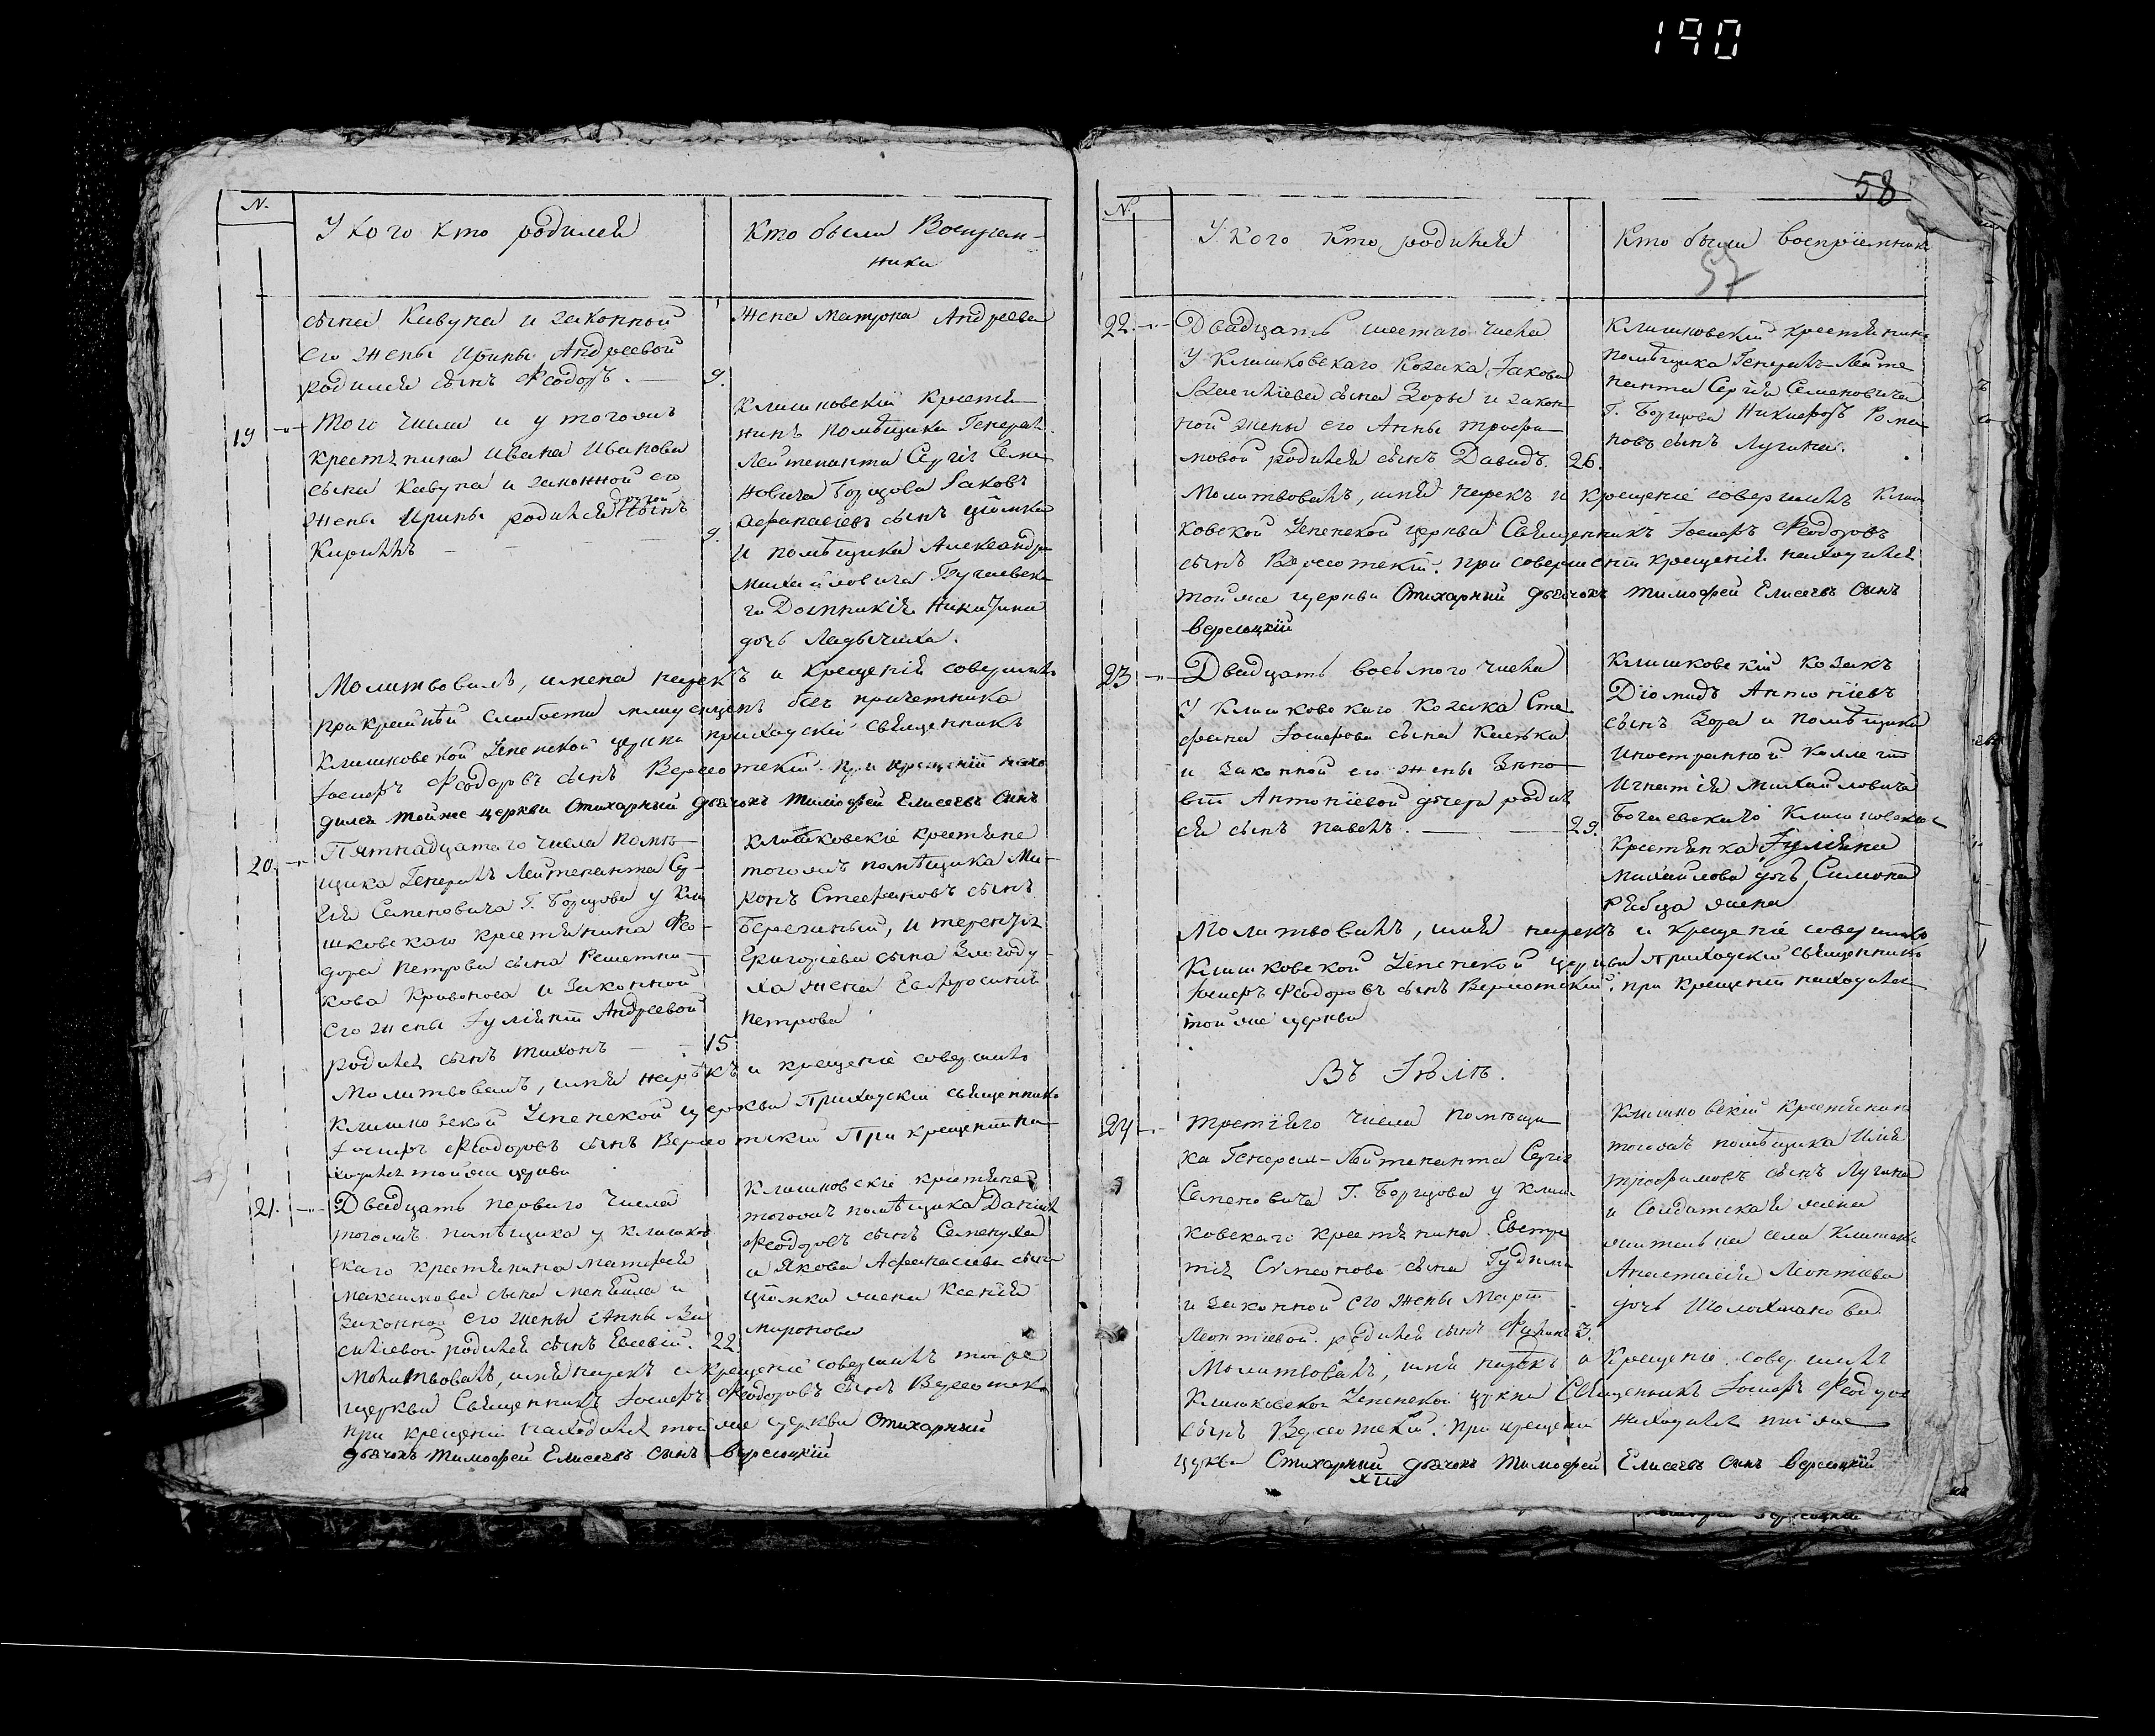 190
58
N.
У кого кто родился
Кто были Восприем-
ники
сына Кавуна и законной
его жены Ирины Андреевой
родился сынъ Феодоръ. — 9.
жена Матрона Андреева
19
Того числа и у тогожъ
крестянина Ивана Иванова
сына Кавуна и законной его
жены Ирины родился другой сынъ
Кириллъ — — — 9.
Клишковскій крестя-
нинъ помѣщика Генералъ
Лейтенанта Сергія Семе
новича Борщова Іаковъ
Афанасіевъ сынъ Ціомка
и помѣщика Александра
Михайловича
Домникія Никитина
дочь Ладычиха.
Молитвовалъ, имена нарекъ и крещеніе совершилъ
при крайнѣй слабости младенцевъ безъ причетника
Клишковской Успенской церкви приходскій священникъ
Іосифъ Феодоровъ сынъ Версотскій. При крещеніи нахо
дился тойже церкви Стихарный дьячокъ Тимофей Елисеевъ Сынъ
20.
Пятнадцатаго числа помѣ-
щика Генералъ Лейтенанта Сер-
гія Семеновича Г. Борщова у Кли
шковскаго крестянина Фео-
дора Петрова сына Решетни-
кова Кривоноса и Законной
его жены Іуліаніи Андреевой
родился сынъ Тихонъ — - 15
Клишковскіе крестяне
тогожъ помѣщика Ми-
конъ Стефановъ сынъ
Березный, и Терентія
Григоріева сына Злогоду-
ха жена Евфросинія
Петрова
Молитвовалъ, имя нарѣкъ и крещеніе совершилъ
Клишковской Успенской церкви Приходскій священникъ
Іосифъ Феодоровъ сынъ Версотскій При крещеніи на-
ходился тойже церкви
21.
Двадцать перваго числа
тогожъ помѣщика у клишков
скаго крестянина Матфея
Максимова сына и
Законной его жены Анны Ва
силіевой родился сынъ Евсевій. 22.
Клишковскіе крестяне
тогожъ помѣщика Даніилъ
Феодоровъ сынъ Семенуха
и Якова Афанасіева сына
Ціомка жена Ксенія
Миронова
Молитвовалъ, имя нарекъ и крещеніе совершилъ тойже
церкви Священникъ Іосифъ Феодоровъ сынъ Версотскій
при крещеніи находился тойже церкви Стихарный
дьячокъ Тимофей Елисеевъ Сынъ Версоцкій
N.
У кого кто родился
Кто были воспріемники
57
22.
Двадцать шестаго числа
У Клишковскаго Козака Іакова
Василіева сына Зоры и закон
ной жены его Анны Трофи-
мовой родился сынъ Давидъ. 26.
Клишковскій крестянинъ
помѣщика Генералъ-Лейте
нанта Сергія Семеновича
Г. Борщова Никифоръ Рома
новъ сынъ Лугина.
Молитвовалъ, имя нарекъ и крещеніе совершилъ Клиш
ковской Успенской церкви Священникъ Іосифъ Феодоровъ
сынъ Версотскій. При совершеніи крещенія находился
тойже церкви Стихарный дьячокъ Тимофей Елисеевъ Сынъ
Версоцкій
23
Двадцать восьмого числа
У Клишковскаго Козака Сте
фана Іосифова сына
и Законной его жены Зино
віи Антоніевой дочери родил
ся сынъ Павелъ. — 29.
Клишковскій козакъ
Діомидъ Антоніевъ
сынъ Зора и помѣщика
Иностранной Коллегіи
Игнатія Михайловича
Клишковская
Крестянка Іуліана
Михайлова дочь, Симона
Рябца жена
Молитвовалъ, имя нарекъ и крещеніе совершилъ
Клишковской Успенской церкви Приходскій священникъ
Іосифъ Феодоровъ сынъ Версотскій, при крещеніи находился
тойже церкви
Въ Іюлѣ.
24
Третіяго числа помѣщи-
ка Генералъ-Лейтенанта Сергія
Семеновича Г. Борщова у Клиш
ковскаго крестянина Евста
тія Симеонова сына Гудима
и Законной его жены Марѳы
Леонтіевой родился сынъ 3.
Клишковскій крестянинъ
тогожъ помѣщика Илія
Трофимовъ сынъ Лугина
и Солдатская жена
жителька села Клишковъ
Анастасія Леонтіева
дочь
Молитвовалъ, имя нарѣкъ и Крещеніе совершилъ
Клишковской Успенской церкви Священникъ Іосифъ Феодоровъ
сынъ Версотскій. При крещеніи находился тойже
церкви Стихарный дьячокъ Тимофей Елисеевъ Сынъ Версоцкій